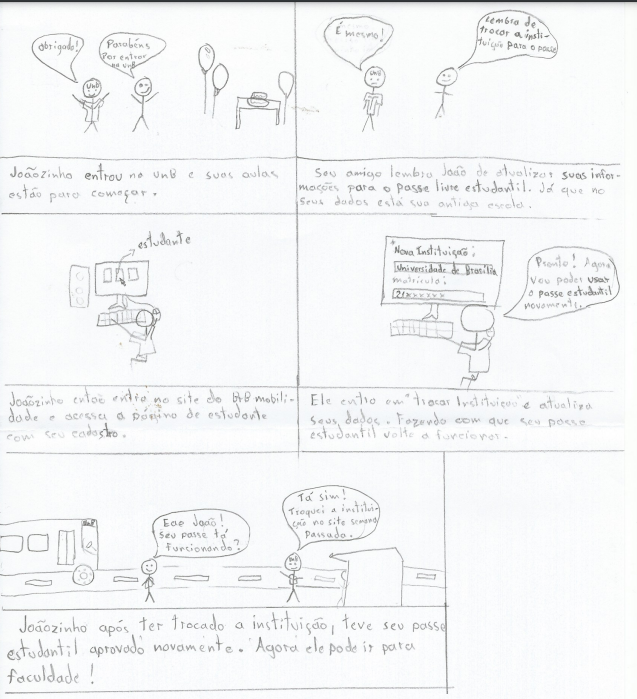 Obrigado!
Parabéns
Por entrar
na UnB
UnB
Joãozinho entrou na UnB e suas aulas
estão para começar.
É mesmo!
Lembra de
trocar a insti-
tuição para o passe
UnB
Seu amigo lembra João de atualizar suas infor-
mações para o passe livre estudantil. Já que no
seus dados está sua antiga escola.
estudante
Joãozinho então entra no site do BRB mobili-
dade e acessa a página de estudante
com seu cadastro.
Nova Instituição:
Universidade de Brasília
matrícula:
21xxxxxx
Pronto! Agora
Vou poder usar
o passe estudantil
novamente.
Ele entra em "trocar Instituição" e atualiza
seus dados. Fazendo com que seu passe
estudantil volte a funcionar.
UnB
Eae João!
Seu passe tá
funcionando?
Tá sim!
Troquei a institui-
ção no site semana
passada.
UnB
Joãozinho após ter trocado a instituição, teve seu passe
estudantil aprovado novamente. Agora ele pode ir para
faculdade!